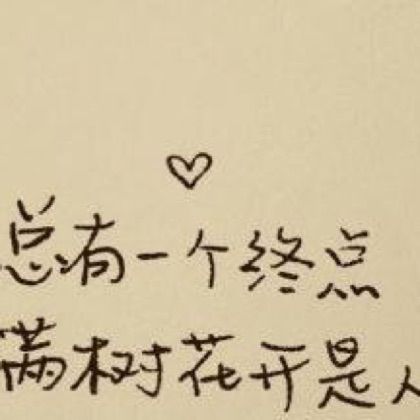 总有一个终点
满树花开是